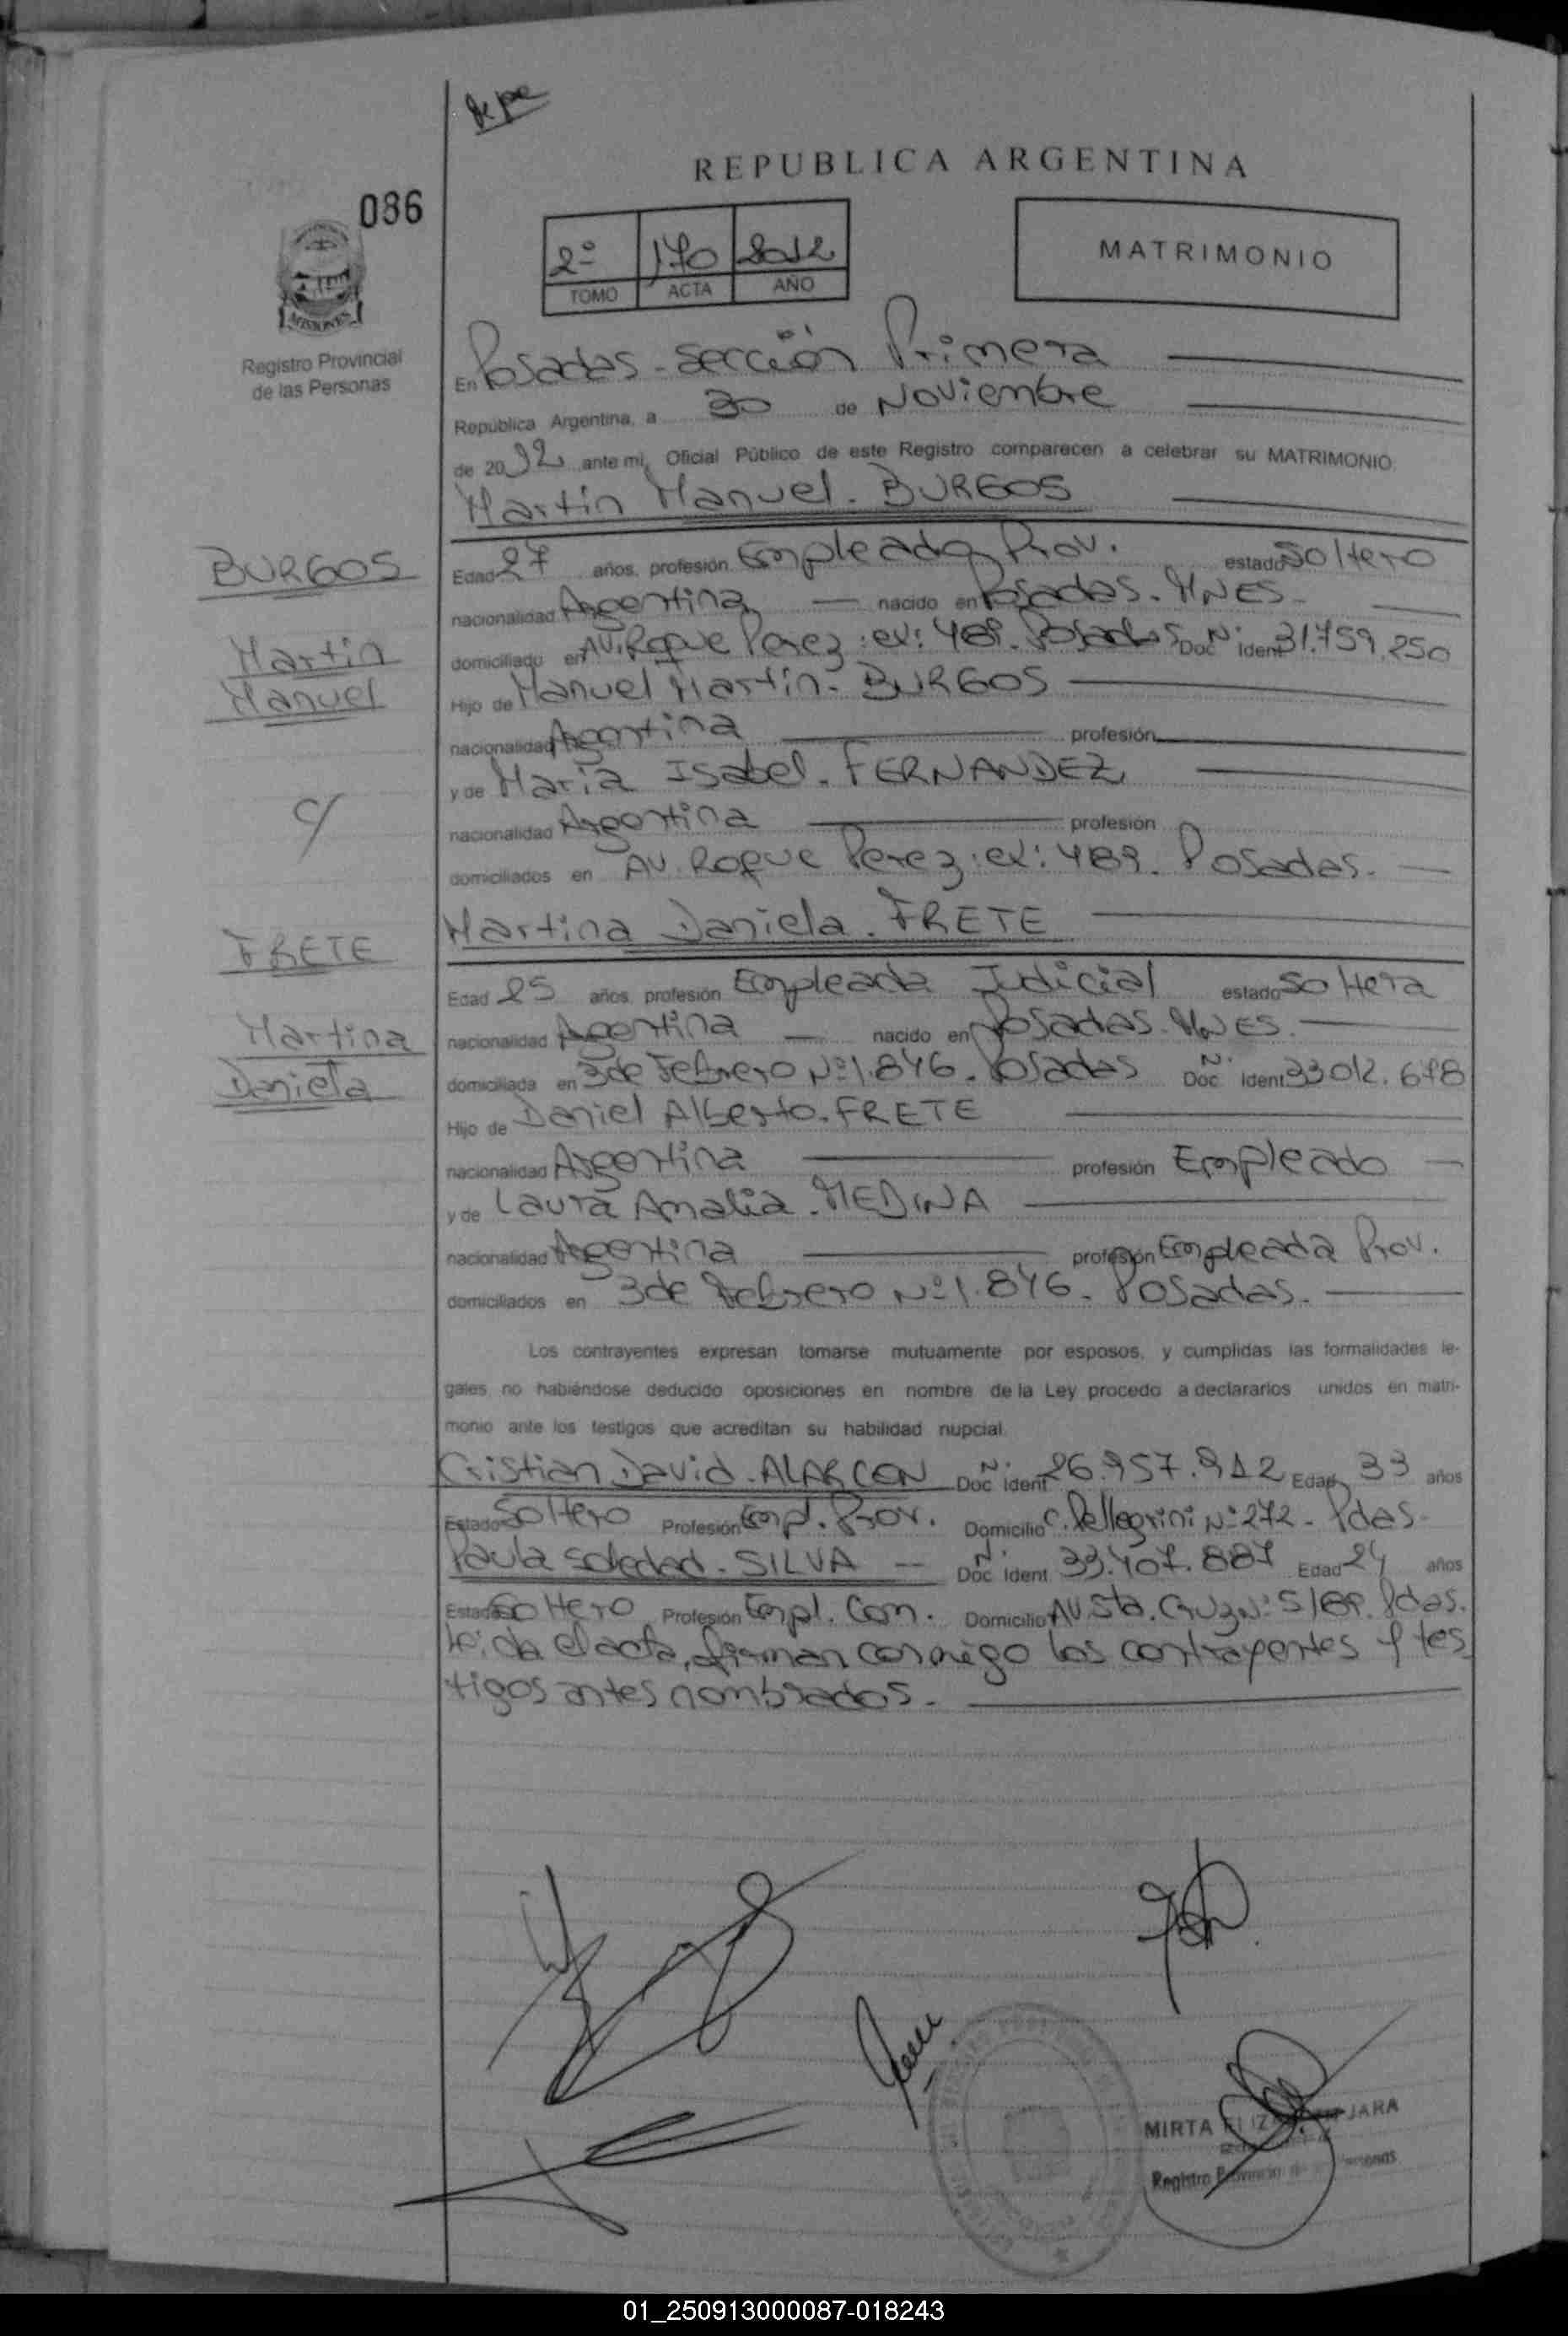 REPUBLICA ARGENTINA
086
2º 170 2012
TOMO ACTA AÑO
MATRIMONIO
MISIONES
Registro Provincial
de las Personas
En Posadas - Sección Primera
República Argentina, a 30 de Noviembre
de 2012 ante mi, Oficial Público de este Registro comparecen a celebrar su MATRIMONIO:
Martín Manuel. BURGOS
BURGOS
Martín
Manuel
Edad 27 años, profesión Empleado Prov. estado Soltero
nacionalidad Argentina nacido en Posadas. MNES.
domiciliado en AV. Roque Perez: ex: 489. Posadas Doc Nº Ident 31.759.250
Hijo de Manuel Martín. BURGOS
nacionalidad Argentina profesión
y de María Isabel. FERNANDEZ
nacionalidad Argentina profesión
c/
domiciliados en AV. Roque Perez: ex: 489. Posadas.
Martina Daniela. FRETE
FRETE
Martina
Daniela
Edad 25 años, profesión Empleada Judicial estado Soltera
nacionalidad Argentina nacido en Posadas. MNES.
domiciliada en 3 de Febrero Nº 1.846. Posadas Doc Nº Ident 33.012.678
Hijo de Daniel Alberto. FRETE
nacionalidad Argentina profesión Empleado
y de Laura Amalia. MEDINA
nacionalidad Argentina profesión Empleada Prov.
domiciliados en 3 de Febrero Nº 1.846. Posadas.
Los contrayentes expresan tomarse mutuamente por esposos, y cumplidas las formalidades le-
gales no habiéndose deducido oposiciones en nombre de la Ley procedo a declararlos unidos en matri-
monio ante los testigos que acreditan su habilidad nupcial.
Cristian David. ALARCON Doc Nº Ident 26.957.912 Edad 33 años
Estado Soltero Profesión Empl. Prov. Domicilio C. Pellegrini Nº 272. Pdas.
Paula Soledad. SILVA Doc Nº Ident. 33.407.887 Edad 24 años
Estado Soltero Profesión Empl. Com. Domicilio AV. Sta. Cruz Nº S/ Pdas.
Leída el acta, firman conmigo los contrayentes y tes
tigos antes nombrados.
MIRTA JARA
Registro
01_250913000087-018243